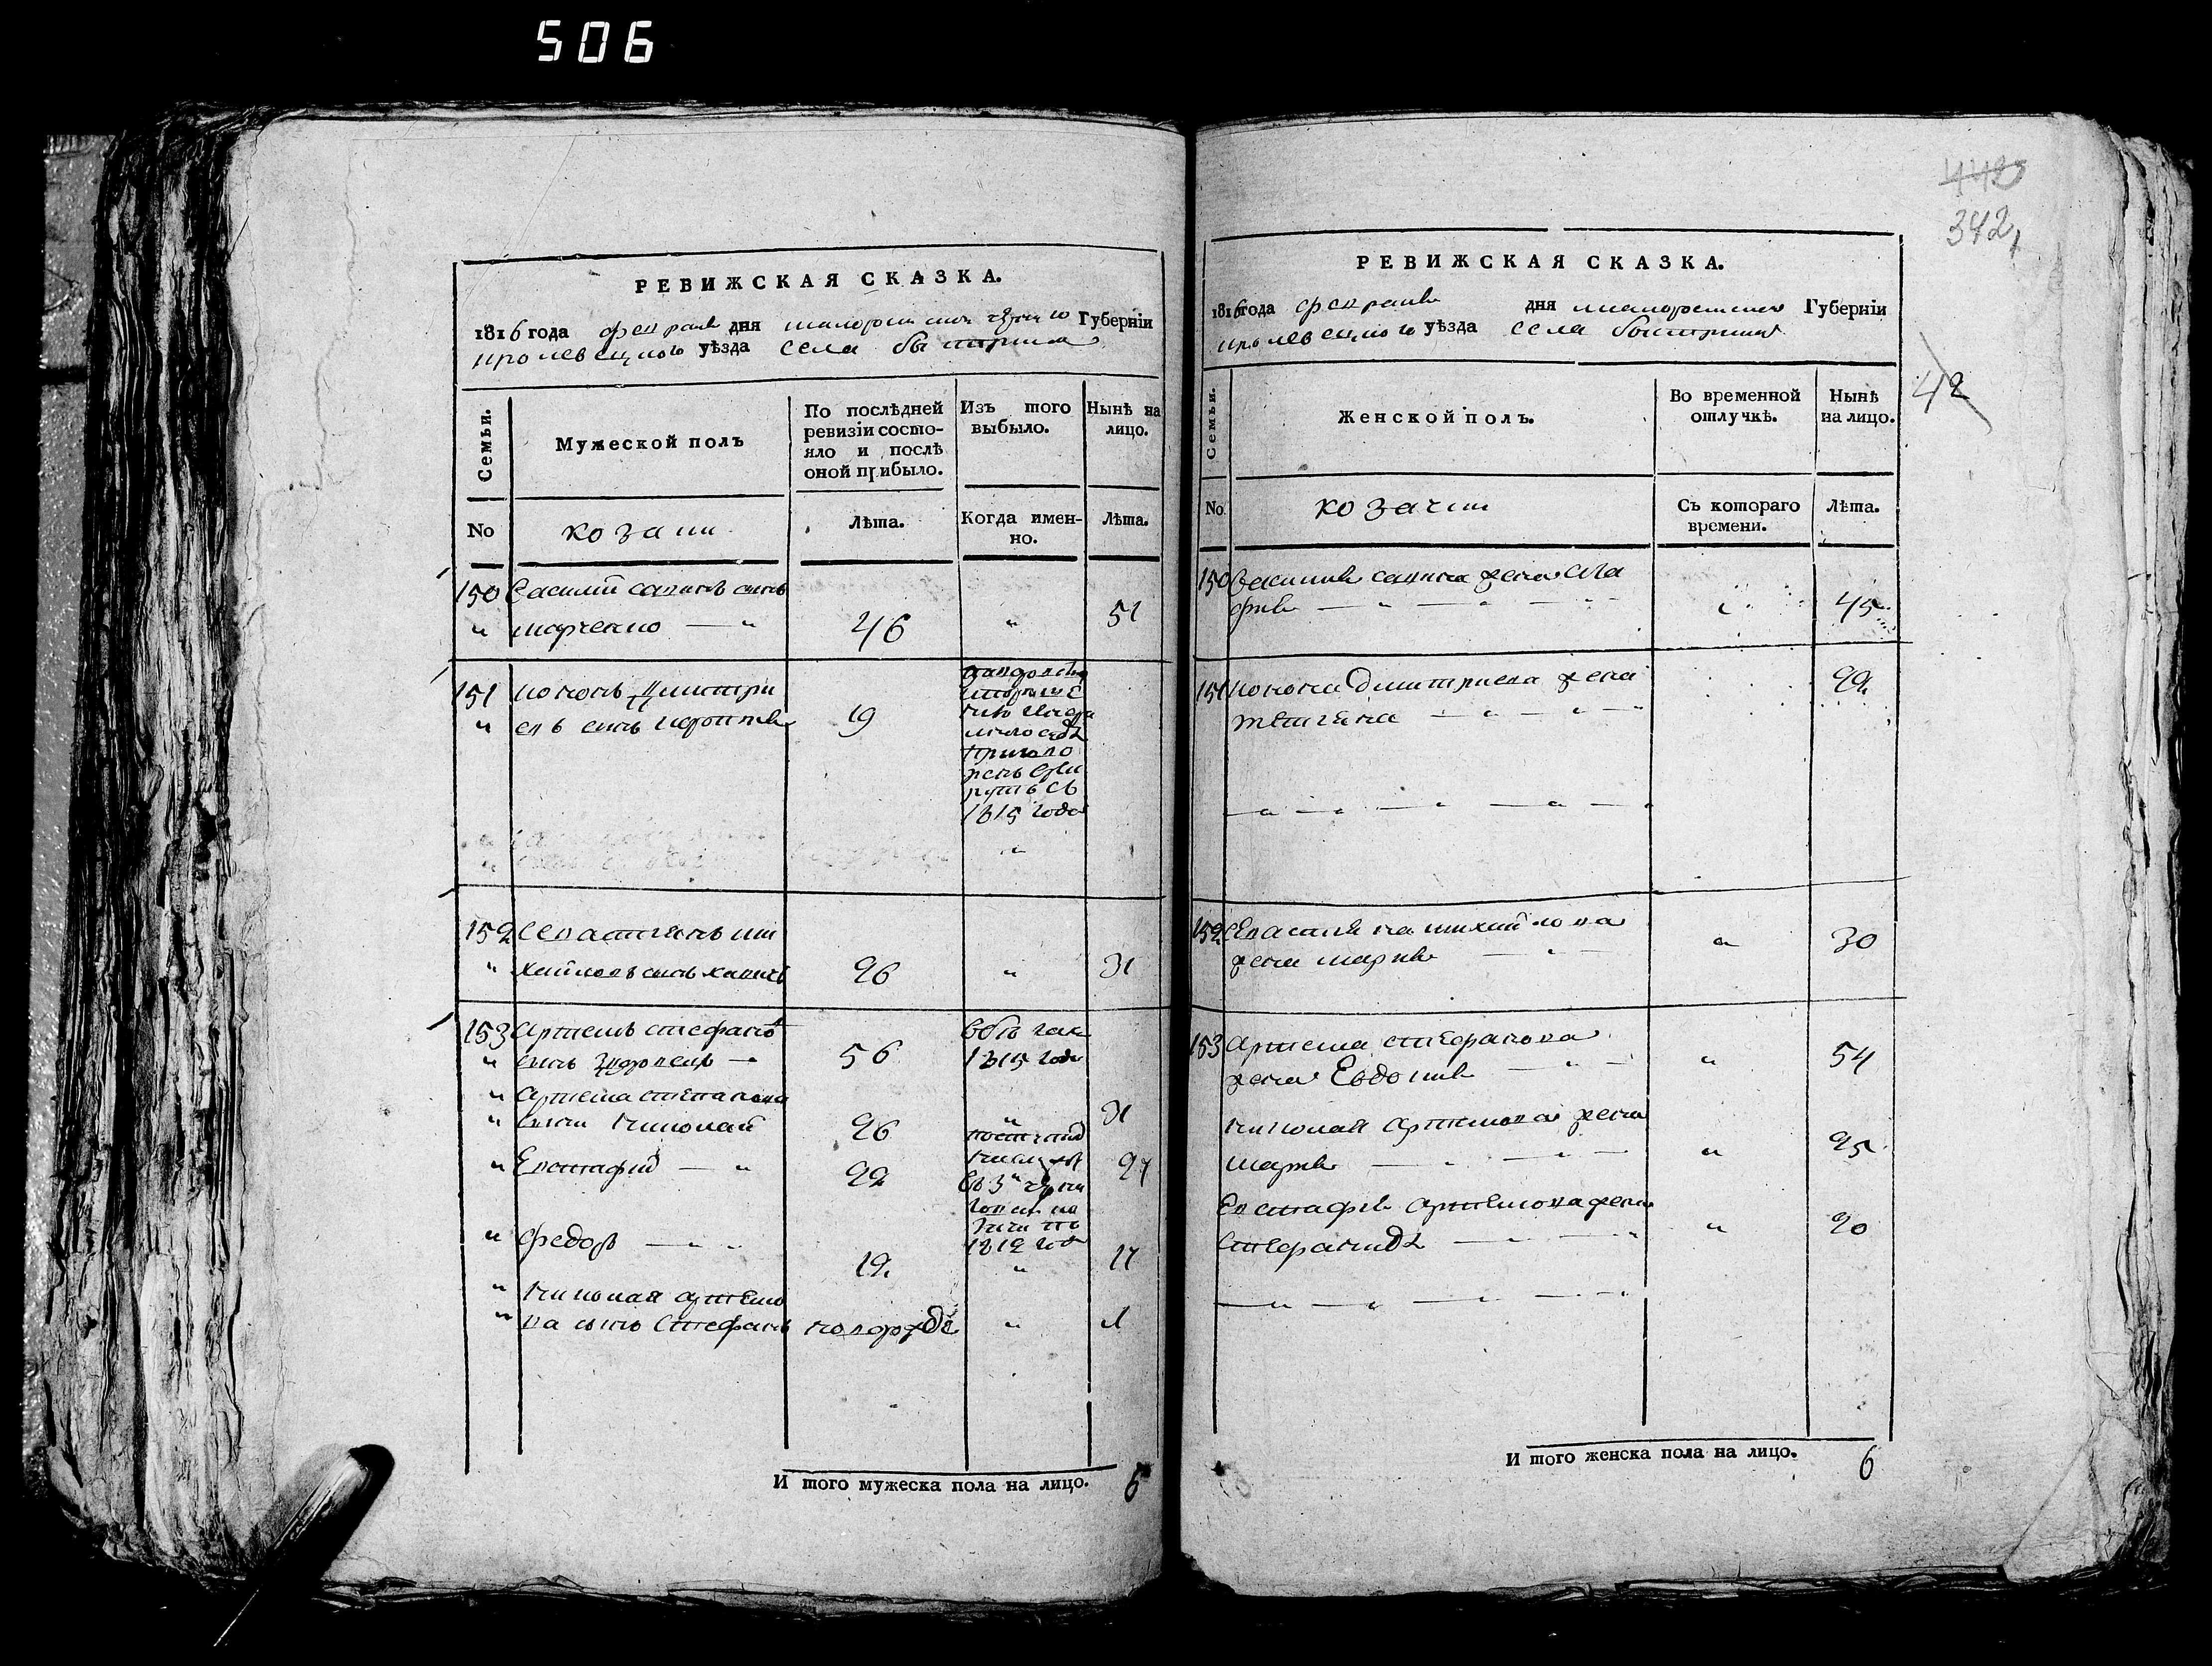 506
РЕВИЖСКАЯ СКАЗКА.
1816 года февраля дня малороссийской черниго Губерніи
кролевецкого уѣзда села быстрика
Семьи.
Мужеской полъ
По послѣдней
ревизіи состо-
яло и послѣ
оной прибыло.
Изъ того
выбыло.
Нынѣ на
лицо.
No
козаки
Лѣта.
Когда имен-
но.
Лѣта.
150 Василий савинъ сынъ
" марченко — " 46 " 51
151 кононъ дмитри
" евъ сынъ 19
1815 года
"
152 Севастиянъ ми
" хайловъ сынъ 26 " 31
153 Артемъ стефановъ
" сынъ 56 1815 года
" Артема степанова
" сыни николай 26 " 31
" Евстафий — " 22 27
1812 года
" федоръ — " 12 " 17
" николая артемо
" ва сынъ Стефанъ новорожде " 1
И того мужеска пола на лицо. 6
440
342
РЕВИЖСКАЯ СКАЗКА.
1816 года февраля дня малороссийской Губерніи
кролевецкого уѣзда села быстрика
42
Семьи.
Женской полъ.
Во временной
отлучкѣ.
Нынѣ
на лицо.
No
козачки
Съ котораго
времени.
Лѣта.
150 Василия савина жена Ага
фия — " — " — " 45
151 конона дмитриева жена 22
тетияна — " — " —
— " — " — " — " —
152 Севастияна михайлова
жена мария — " — " 30
153 Артема стефанова
жена Евдокия — " — " 54
николая артемова жена
мария — " — " — " 25
Евстафия артемова жена
Стефанида — " — " 20
— " — " — " — "
И того женска пола на лицо. 6